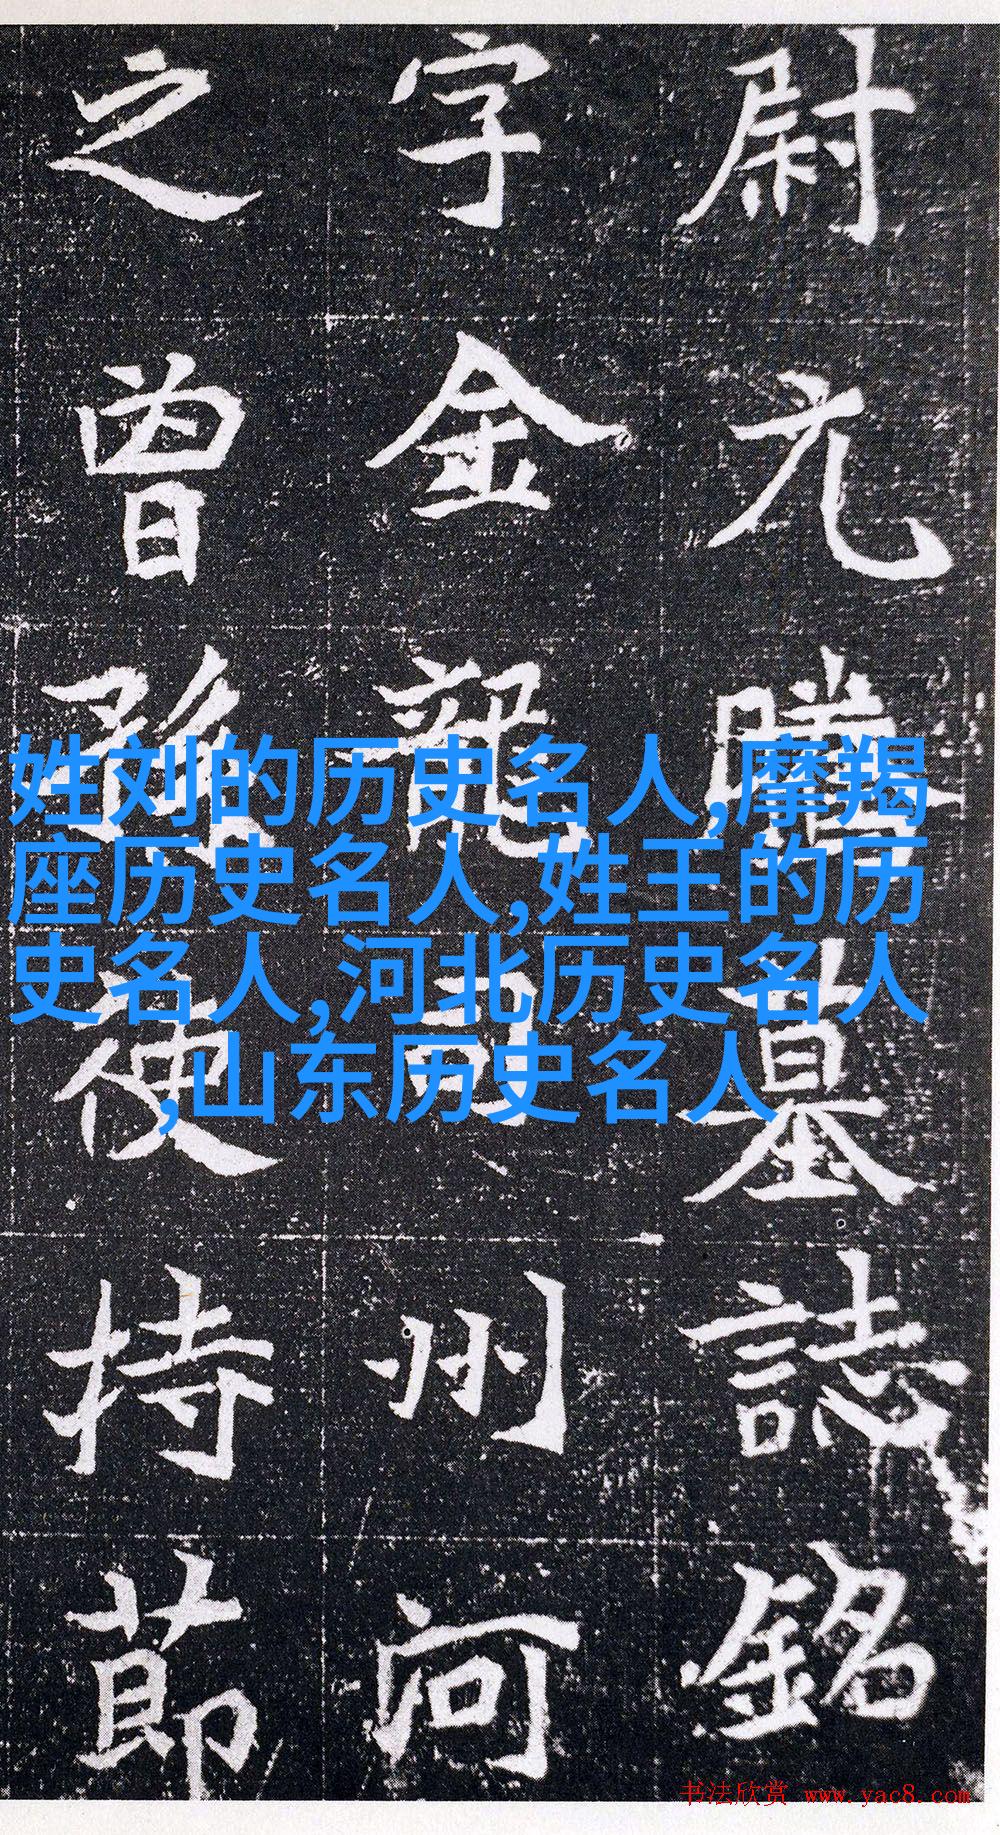 尉元騰墓誌銘
字金龍司州河
之曾孫使持節
姓刘的历史名人,摩羯
座历史名人,姓王的历
史名人,河北历史名人
,山东历史名人
书法欣赏 www.yac8.com